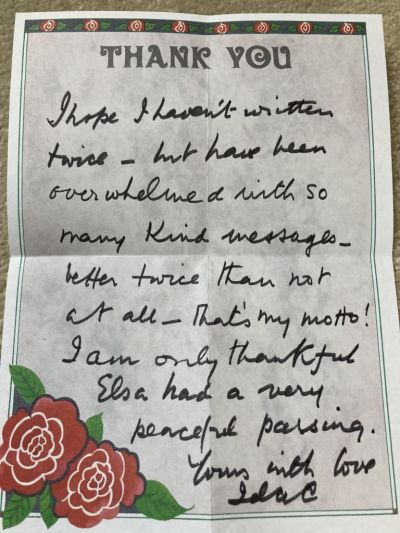 THANK YOU
I hope I haven't written
twice – but have been
overwhelmed with so
many kind messages –
better twice than not
at all – That's my motto!
I am only thankful
Elsa had a very
peaceful passing.
Yours with love